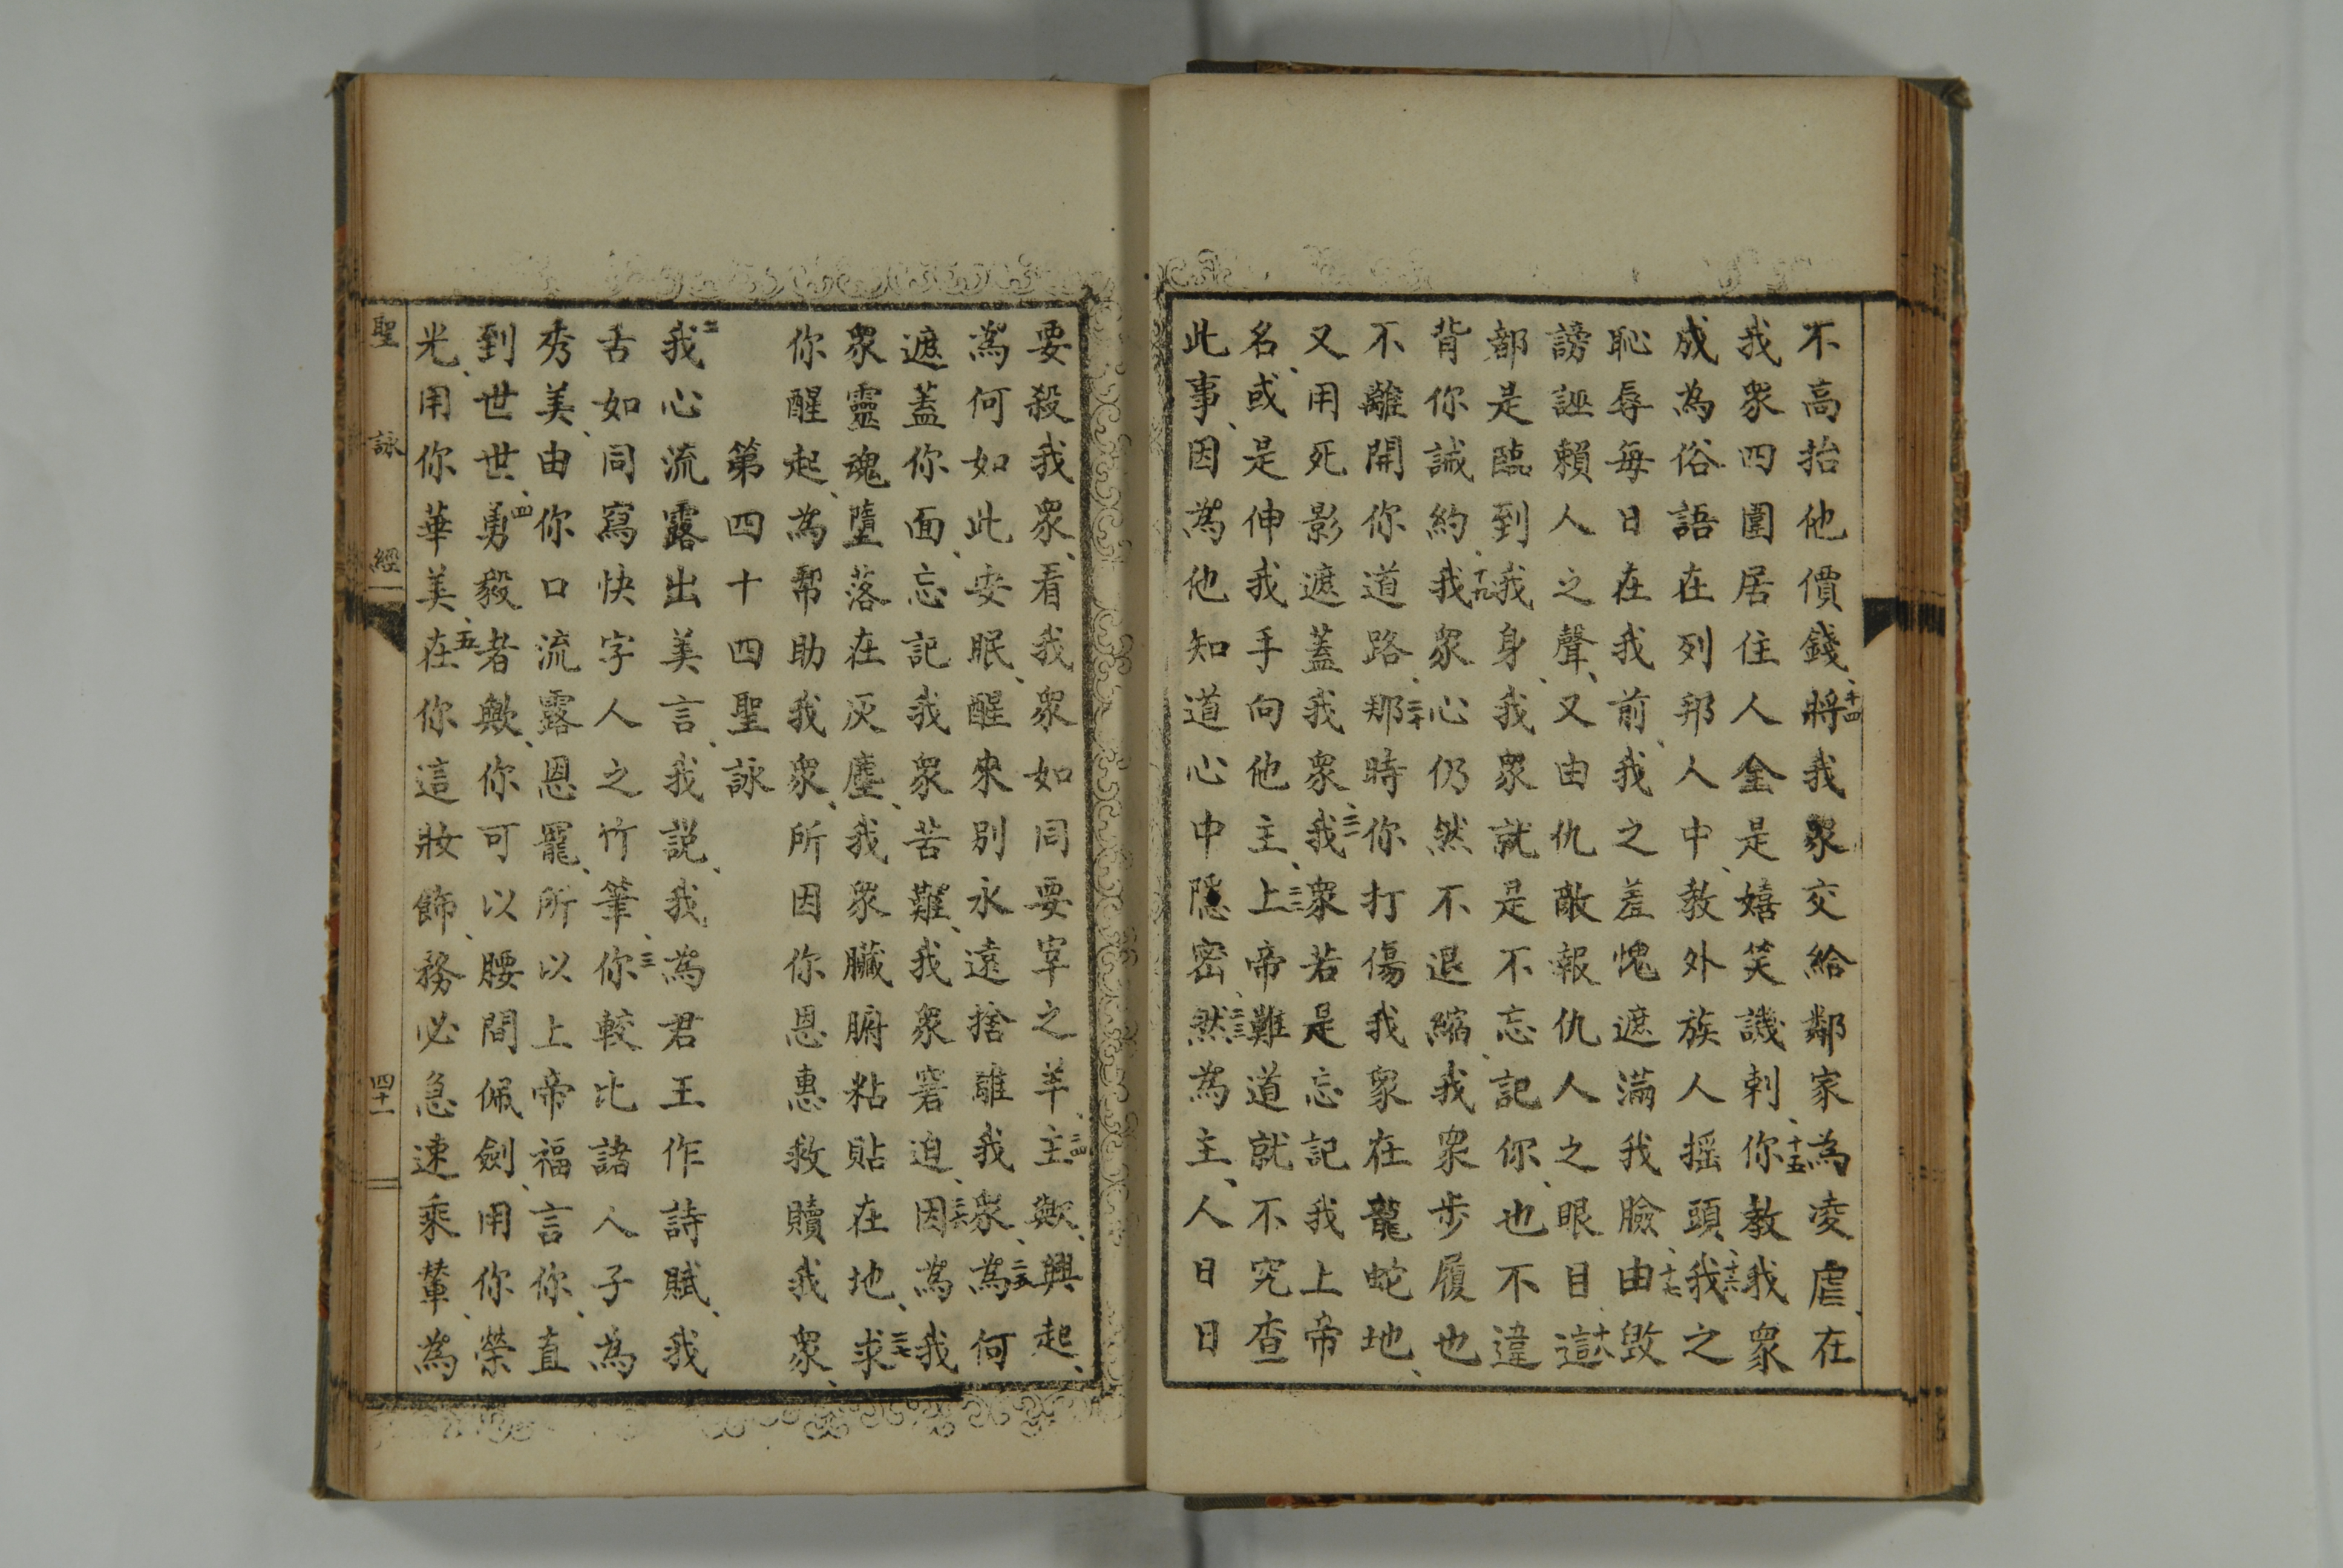 不高抬他價錢、十四將我眾交給鄰家為凌虐、在
我眾四圍居住人金是嬉笑譏刺、十五你教我眾
成為俗語在列邦人中、教外族人搖頭、十六我之
恥辱每日在我前、我之羞愧遮滿我臉、十七由毀
謗誣賴人之聲、又由仇敵報仇人之眼目、十八這
都是臨到我身、我眾就是不忘記你、也不違
背你誡約、十九我眾心仍然不退縮、我眾步履也
不離開你道路、二十那時你打傷我眾在龍蛇地、
又用死影遮蓋我眾、二一我眾若是忘記我上帝
名、或是伸我手向他主、二二上帝難道就不究查
此事、因為他知道心中隱密、二三然為主、人日日
要殺我眾、看我眾如同要宰之羊、二四主歟、興起、
為何如此安眠、醒來別永遠捨離我眾、二五為何
遮蓋你面、忘記我眾苦難、我眾窘迫、二六因為我
眾靈魂墮落在灰塵、我眾臟腑粘貼在地、二七求
你醒起、為幫助我眾、所因你恩惠救贖我眾、
第四十四聖詠
二我心流露出美言、我說、我為君王作詩賦、我
舌如同寫快字人之竹筆、三你較比諸人子為
秀美、由你口流露恩寵、所以上帝福言你、直
到世世、四勇毅者歟、你可以腰間佩劍、用你榮
光、用你華美、五在你這妝飾、務必急速乘輦、為
聖詠經 四十一